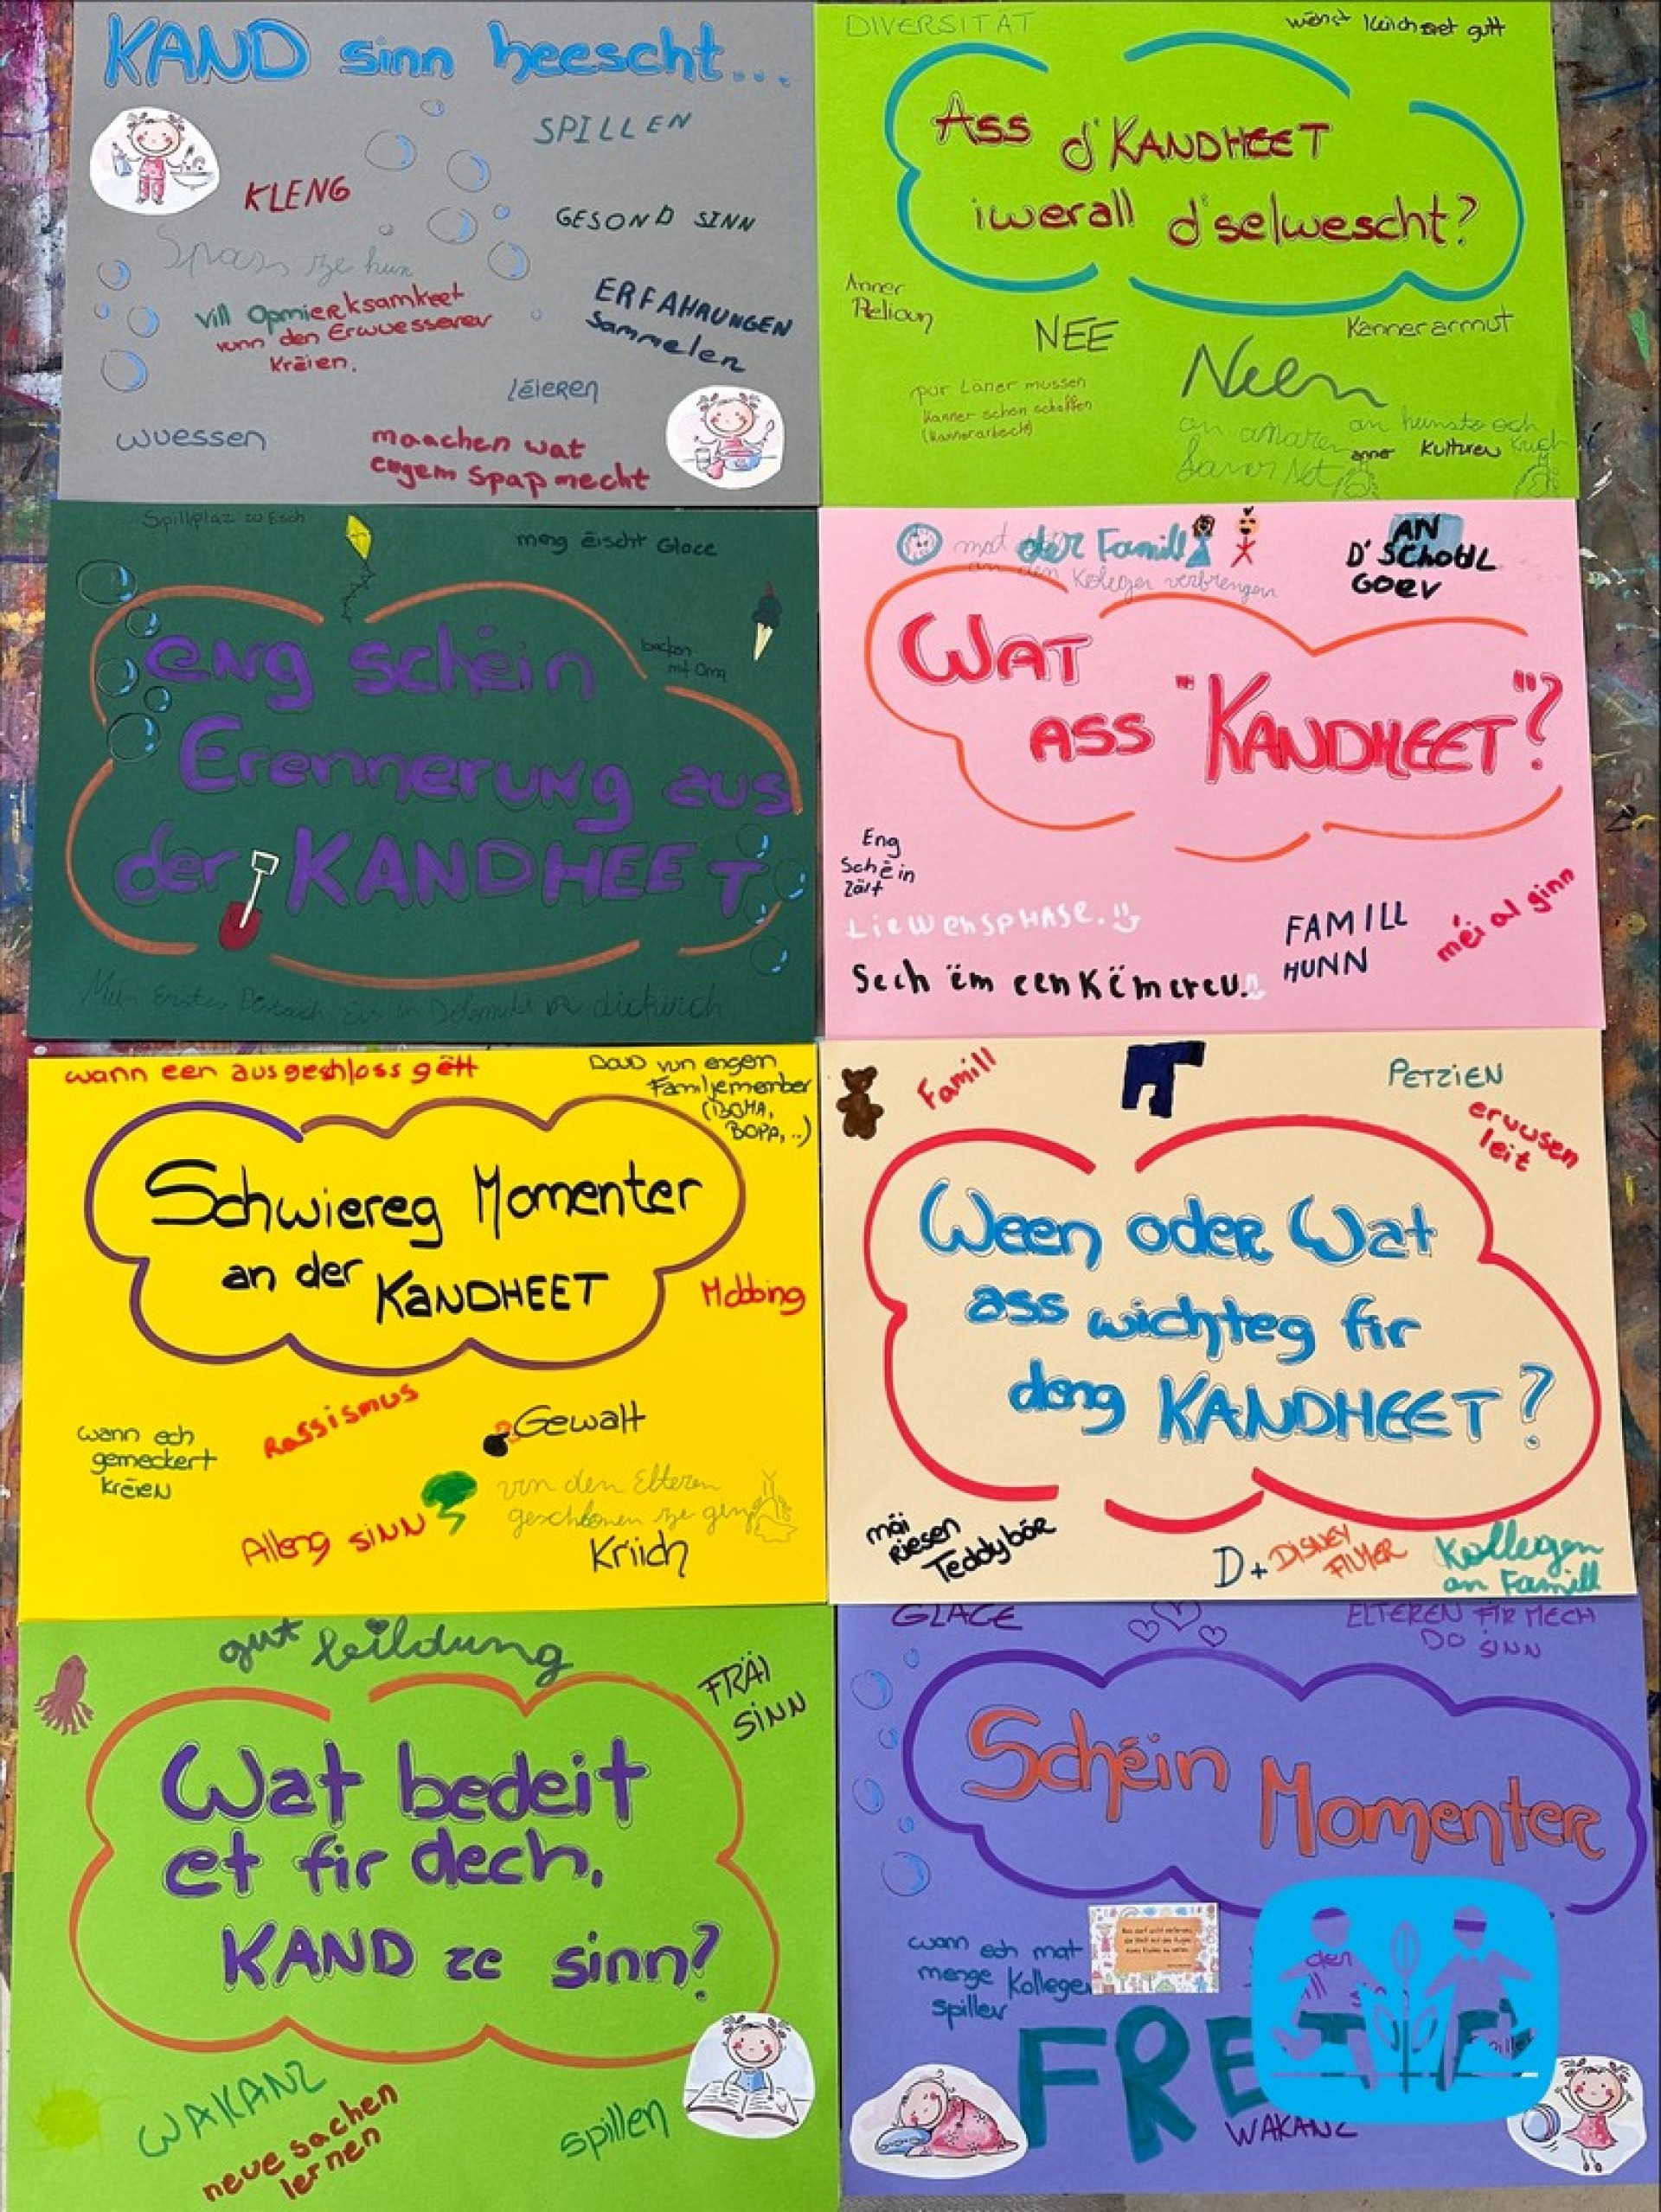 KAND sinn heescht...
SPILLEN
KLENG
GESOND SINN
Spass ze hun
vill Opmierksamkeet
vunn den Erwuesserer
kréien.
ERFAHRUNGEN
sammelen
léieren
wuessen
maachen wat
engem Spaß mecht
DIVERSITÄT
gutt
Ass d'KANDHEET
iwerall d'selwescht?
Anner
Relioun
NEE
Kannerarmut
Neen
pur Läner mussen
Kanner schon schaffen
(Kannerarbecht)
an anaren
anner Kulturen
Spillplaz zu Esch
meng éischt Glace
backen
mt Oma
eng schéin
Erennerung aus
der KANDHEET
Mein Erster
dickirch
mat der Famill
an den Kolegen verbrengen
AN
D'SCHOUL
GOEN
WAT
ASS "KANDHEET"?
Eng
Schéin
Zäit
LIEWENSPHASE.
Sech ëm een Këmeren.
FAMILL
HUNN
méi al ginn
wann een ausgeschloss gëtt
DOUD vun engen
Familjemember
(BOMA,
BOPA,..)
Schwiereg Momenter
an der KANDHEET
Mobbing
Rassismus
Gewalt
wann ech
gemeckert
kréien
Alleng SINN
vun den Elteren
geschloen ze ginn
Kriich
Famill
PETZIEN
erwusen
leit
Ween oder Wat
ass wichteg fir
deng KANDHEET?
mäi
riesen
Teddybär
D+
DISNEY
FILMER
Kollegen
an Famill
gut bildung
FRÄI
SINN
Wat bedeit
et fir dech,
KAND ze sinn?
WAKANZ
neue sachen
lernen
spillen
GLACE
ELTEREN FIR MECH
DO SINN
Schéin Momenter
wann ech mat
menge Kollegen
spillen
den
FRE
WAKANZ